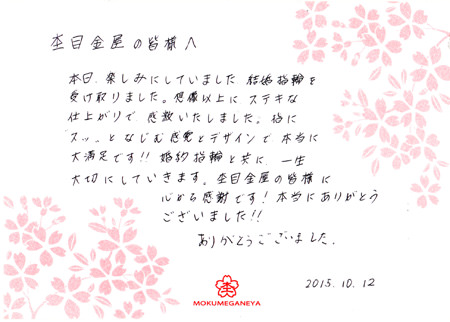 杢目金屋の皆様へ
本日、楽しみにしていました 結婚指輪を
受け取りました。想像以上に ステキな
仕上がりで 感激いたしました。指に
"スッ"と なじむ感覚とデザインで 本当に
大満足です!! 婚約指輪と共に 一生
大切にしていきます。杢目金屋の皆様に
心から感謝です! 本当にありがとう
ございました!!
ありがとうございました。
2015.10.12
MOKUMEGANEYA